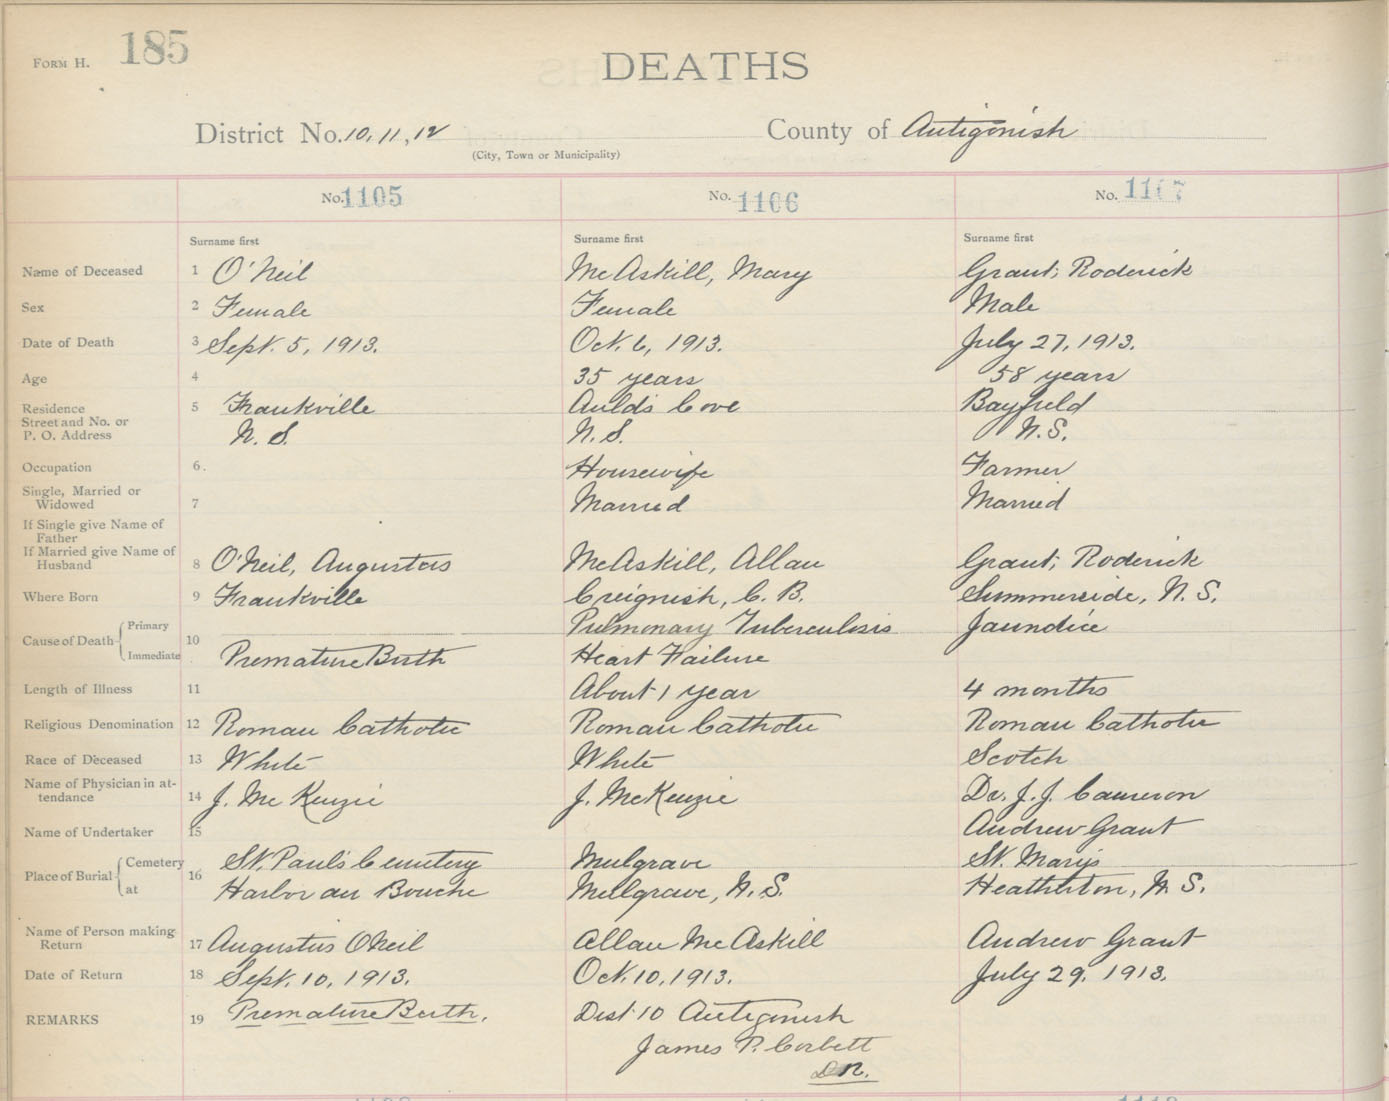 FORM H. 185
DEATHS
District No. 10, 11, 12 County of Antigonish
(City, Town or Municipality)
No. 1105 No. 1106 No. 1107
Surname first Surname first Surname first
Name of Deceased 1 O'Neil McAskill, Mary Grant, Roderick
Sex 2 Female Female Male
Date of Death 3 Sept. 5, 1913. Oct. 6, 1913. July 27, 1913.
Age 4 35 years 58 years
Residence 5 Frankville Auld's Cove Bayfield
Street and No. or
P. O. Address N. S. N. S. N. S.
Occupation 6. Housewife Farmer
Single, Married or
Widowed 7 Married Married
If Single give Name of
Father
If Married give Name of
Husband 8 O'Neil, Augustus McAskill, Allan Grant, Roderick
Where Born 9 Frankville Creignish, C. B. Summerside, N. S.
Cause of Death Primary 10 Pulmonary Tuberculosis Jaundice
Immediate Premature Birth Heart Failure
Length of Illness 11 About 1 year 4 months
Religious Denomination 12 Roman Catholic Roman Catholic Roman Catholic
Race of Deceased 13 White White Scotch
Name of Physician in at-
tendance 14 J. McKenzie J. McKenzie Dr. J. J. Cameron
Name of Undertaker 15 Andrew Grant
Place of Burial Cemetery 16 St. Paul's Cemetery Mulgrave St. Mary's
at Harbor au Bouche Mulgrave, N. S. Heatherton, N. S.
Name of Person making
Return 17 Augustus O'Neil Allan McAskill Andrew Grant
Date of Return 18 Sept. 10, 1913. Oct. 10, 1913. July 29, 1913.
REMARKS 19 Premature Birth. Dist 10 Antigonish
James P. Corbett
D.R.